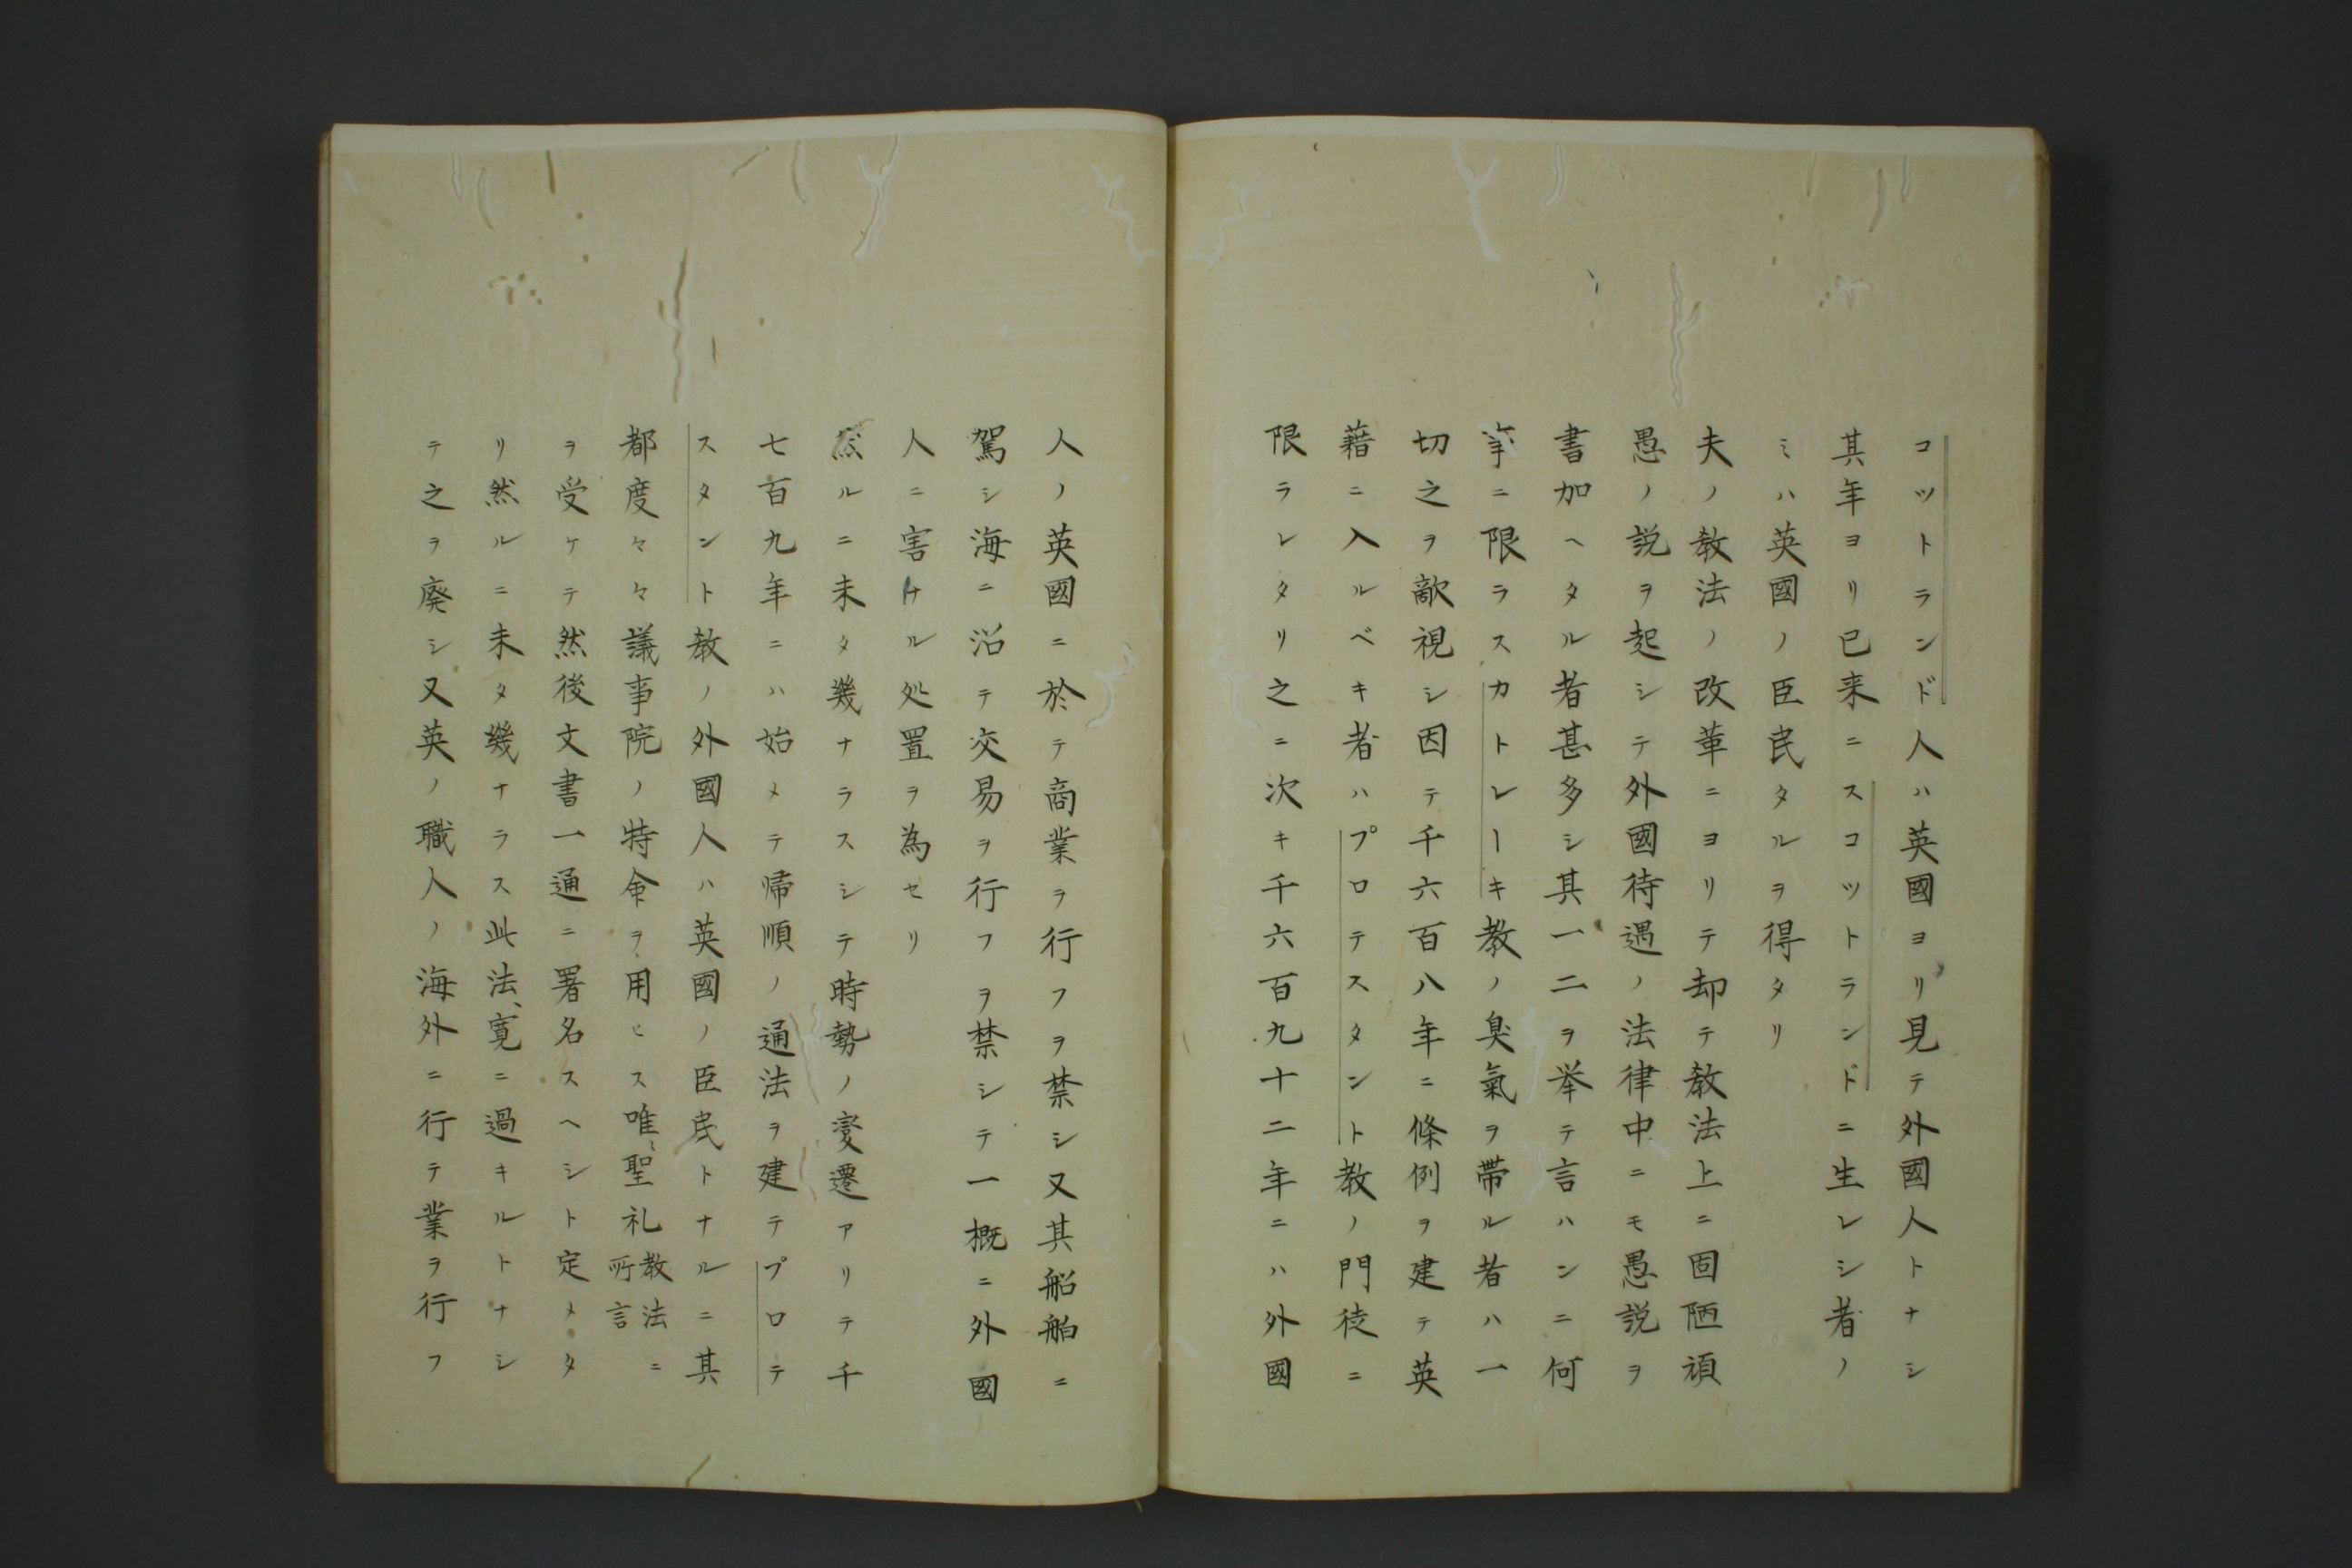 コットランド人ハ英國ヨリ見テ外國人トナシ
其年ヨリ已来ニスコットランドニ生レシ者ノ
ミハ英國ノ臣民タルヲ得タリ
夫ノ教法ノ改革ニヨリテ却テ教法上ニ固陋頑
愚ノ説ヲ起シテ外國待遇ノ法律中ニモ愚説ヲ
書加ヘタル者甚多シ其一二ヲ挙テ言ハンニ何
年ニ限ラスカトレーキ教ノ臭氣ヲ帯ル者ハ一
切之ヲ敵視シ因テ千六百八年ニ條例ヲ建テ英
藉ニ入ルベキ者ハプロテスタント教ノ門徒ニ
限ラレタリ之ニ次キ千六百九十二年ニハ外國
人ノ英國ニ於テ商業ヲ行フヲ禁シ又其船舶ニ
駕シ海ニ沿テ交易ヲ行フヲ禁シテ一概ニ外國
人ニ害ケル処置ヲ為セリ
然ルニ未タ幾ナラスシテ時勢ノ変遷アリテ千
七百九年ニハ始メテ帰順ノ通法ヲ建テプロテ
スタント教ノ外國人ハ英國ノ臣民トナルニ其
都度々々議事院ノ特命ヲ用ヒス唯聖礼教法ニ所言
ヲ受ケテ然後文書一通ニ署名スヘシト定メタ
リ然ルニ未タ幾ナラス此法寛ニ過キルトナシ
テ之ヲ廃シ又英ノ職人ノ海外ニ行テ業ヲ行フ